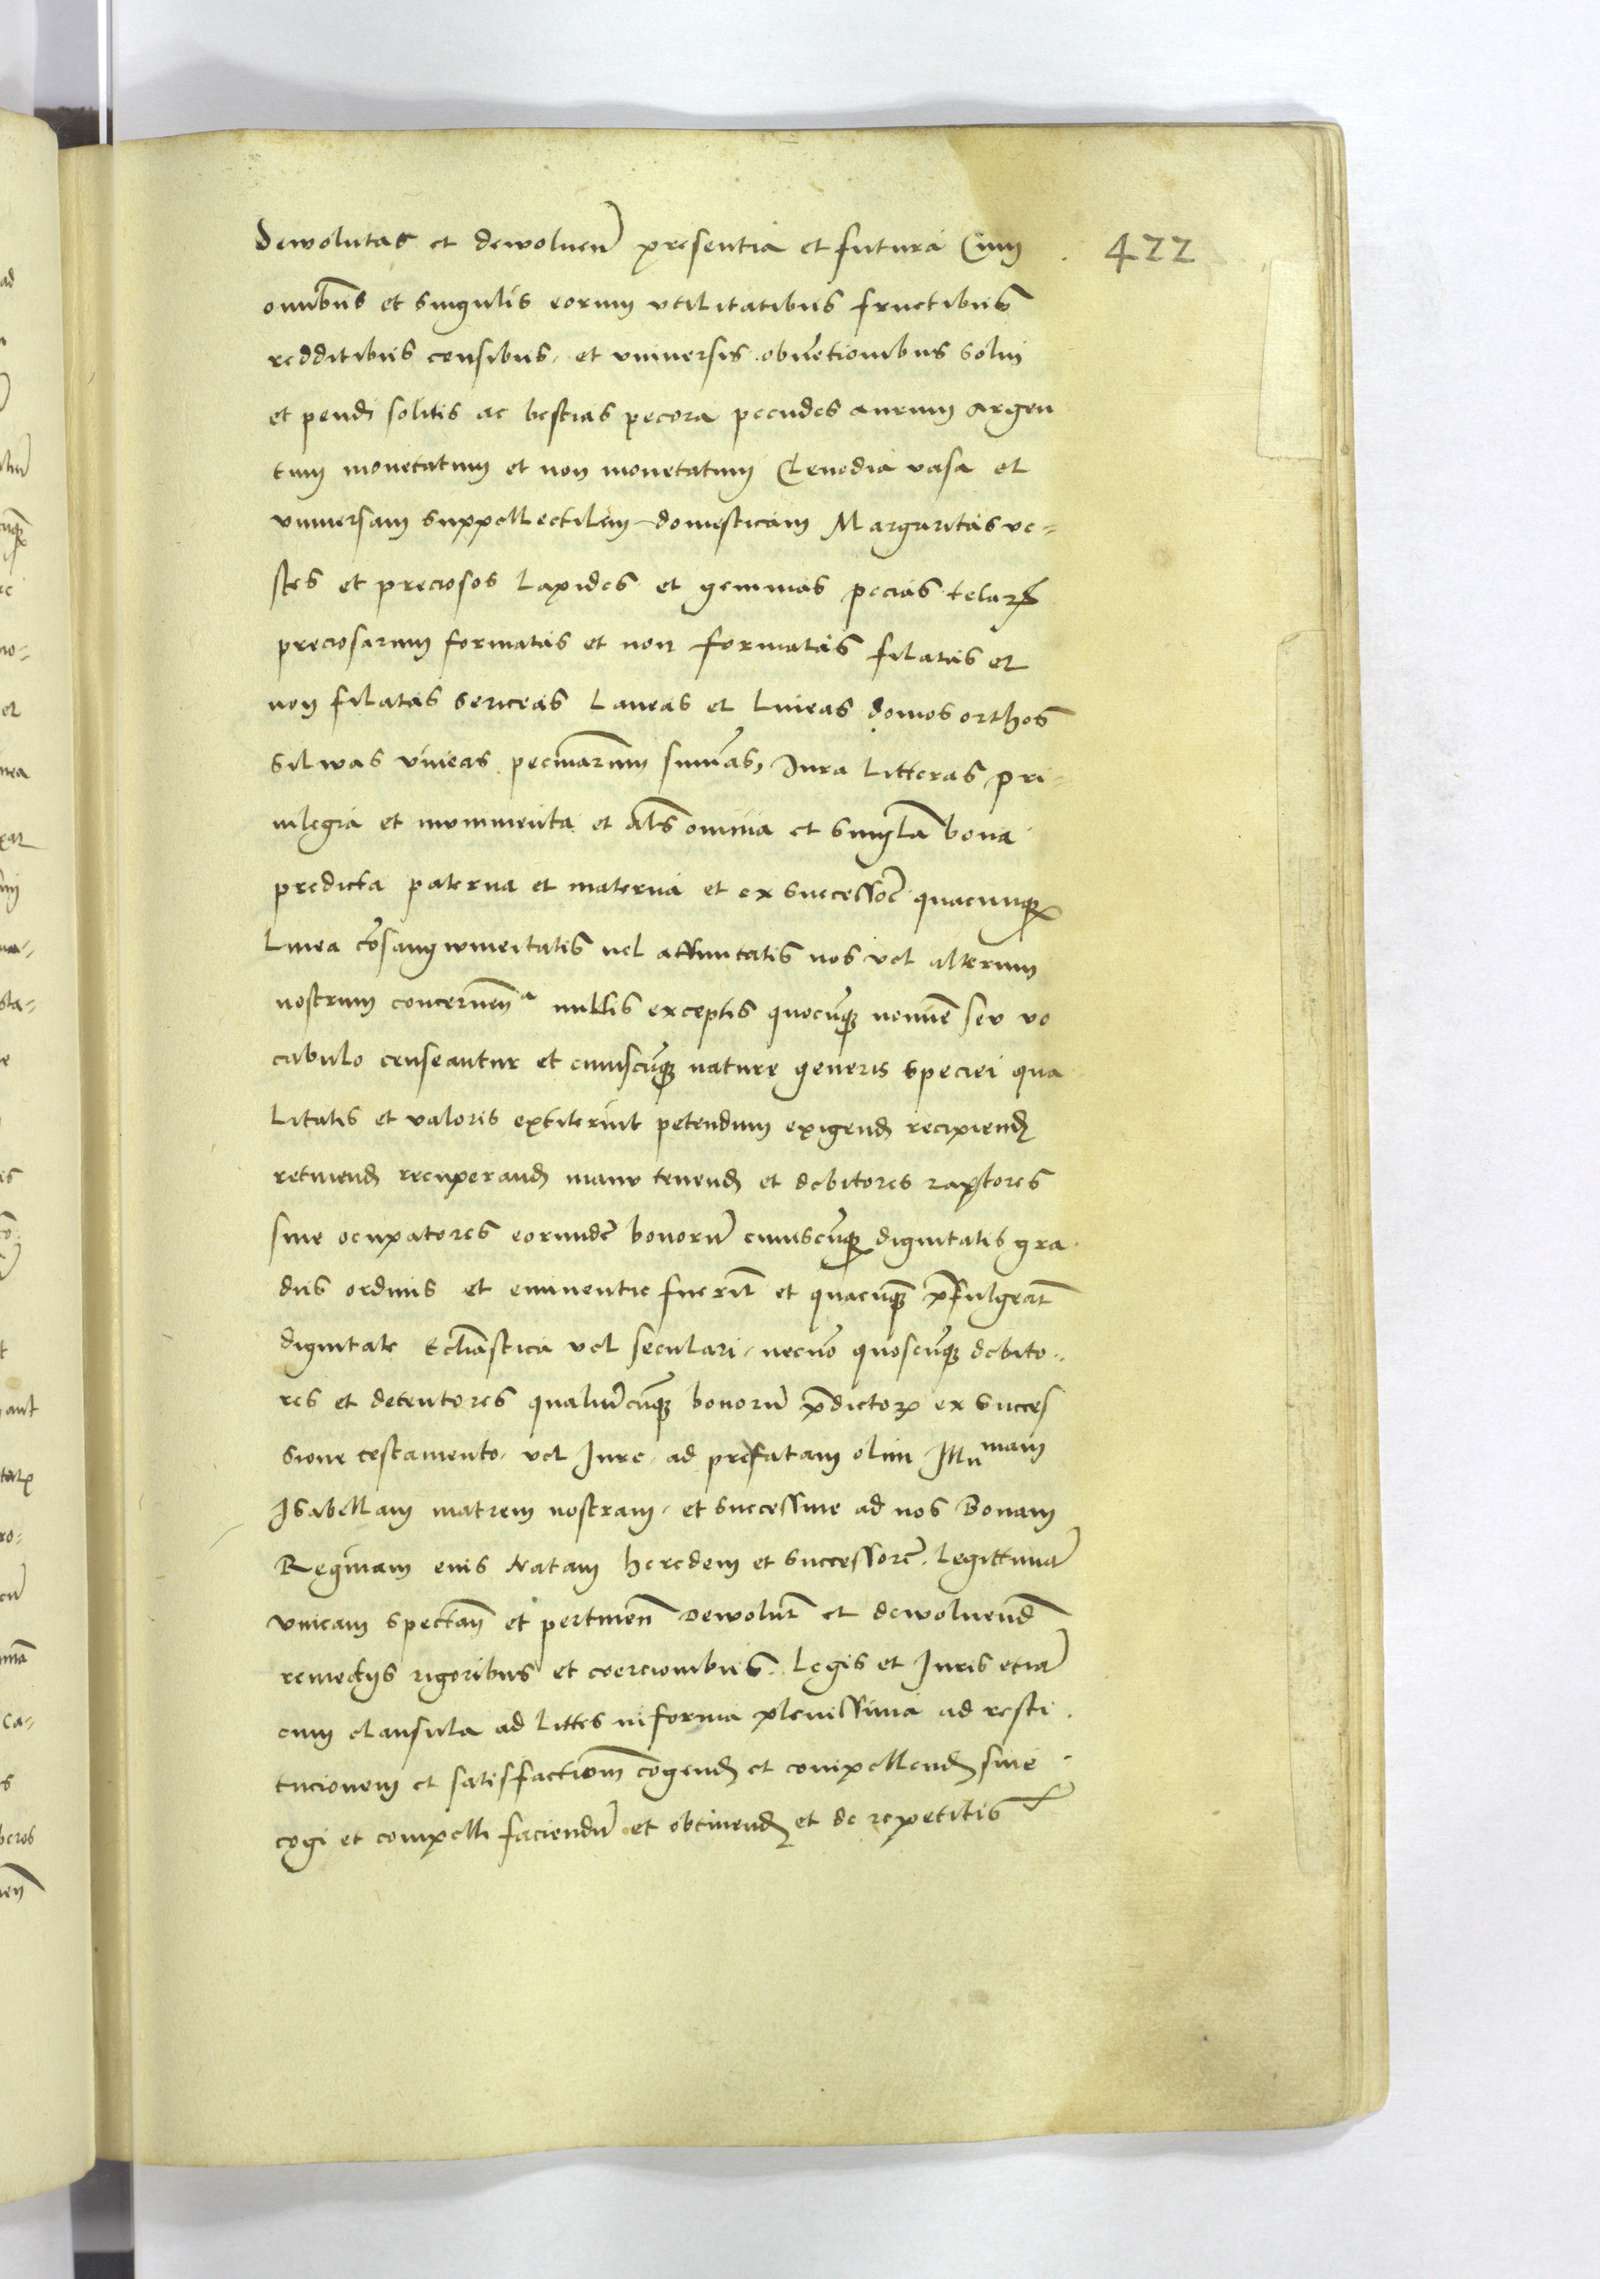 dewolutas et dewoluen̄ presentia et futura Cum
422
omnibus et singulis eorum vtilitatibus fructibus
redditibus censibus et vniversis obuētionibus solui
et pendi solitis ac bestias pecora pecudes aurum argen
tum monetatum et non monetatum Clenodia vasa et
vniuersam suppellectilem domesticam Margaritas ve-
stes et preciosos Lapides et gemmas pecias telarꝫ
preciosarum formatas et non formatas filatas et
non filatas sericeas Laneas et Lineas domos orthos
Silwas vineas pecūiarum sum̄as, Iura Litteras pri
uilegia et munimenta et Als omnia et Singl̄a bona
predicta paterna et materna et ex successiōe quacunqꝫ
Linea cōsanguineitatis uel affinitatis nos vel alterum
nostrum concernen̄ᵃ nullis exceptis quocūqꝫ nomīe seu vo
cabulo censeantur et cuiuscūqꝫ nature generis speciei qua
Litatis et valoris extiterint petendum exigend recipiend
retinend recuperand manu tenend et debitores raptores
siue ocupatores eorundē bonorū cuiuscūqꝫ dignitatis gra
dus ordinis et eminentie fuerīt et quacūqꝫ p̄fulgeāt
dignitate Ecliāstica vel seculari necnō quoscūqꝫ debito
res et detentores qualitercūqꝫ bonorū p̄dictoꝝ ex Succes
sione testamento vel Iure ad prefatam olim Illuᵐᵃᵐ
Isabellam matrem nostram et successiue ad nos Bonam
Reginam eius Natam heredem et successorē Legittimā
vnicam spectan̄ et pertinen̄ dewolut̄ et dewoluend̄
remedijs rigoribus et coercionibus Legis et Iuris eciā
cum clausula ad Littes in forma plenissima ad resti
tucionem et satisfactiōem cogend et compellend siue
cogi et compelli faciendū et obtinend et de repetitis